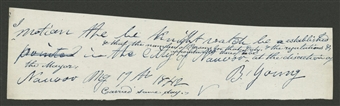 I motion the be Knight watch be established
& that the number of
& the regulations &
pointed in the City of Nauvoo, at the direction of
the Mayor.
Nauvoo B. Young
Carried same day.